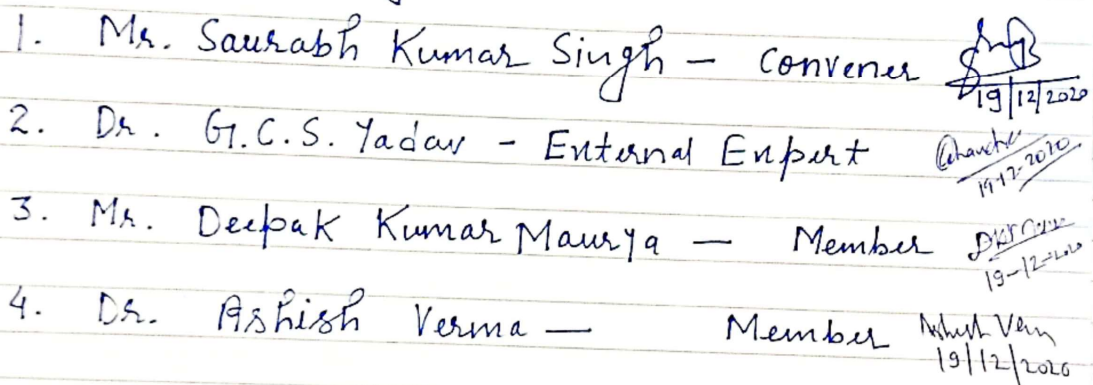 1. Mr. Saurabh Kumar Singh - Convener
19/12/2020
2. Dr. G.C.S. Yadav - External Expert
19-12-2020
3. Mr. Deepak Kumar Maurya - Member
19-12-2020
4. Dr. Ashish Verma - Member
19/12/2020